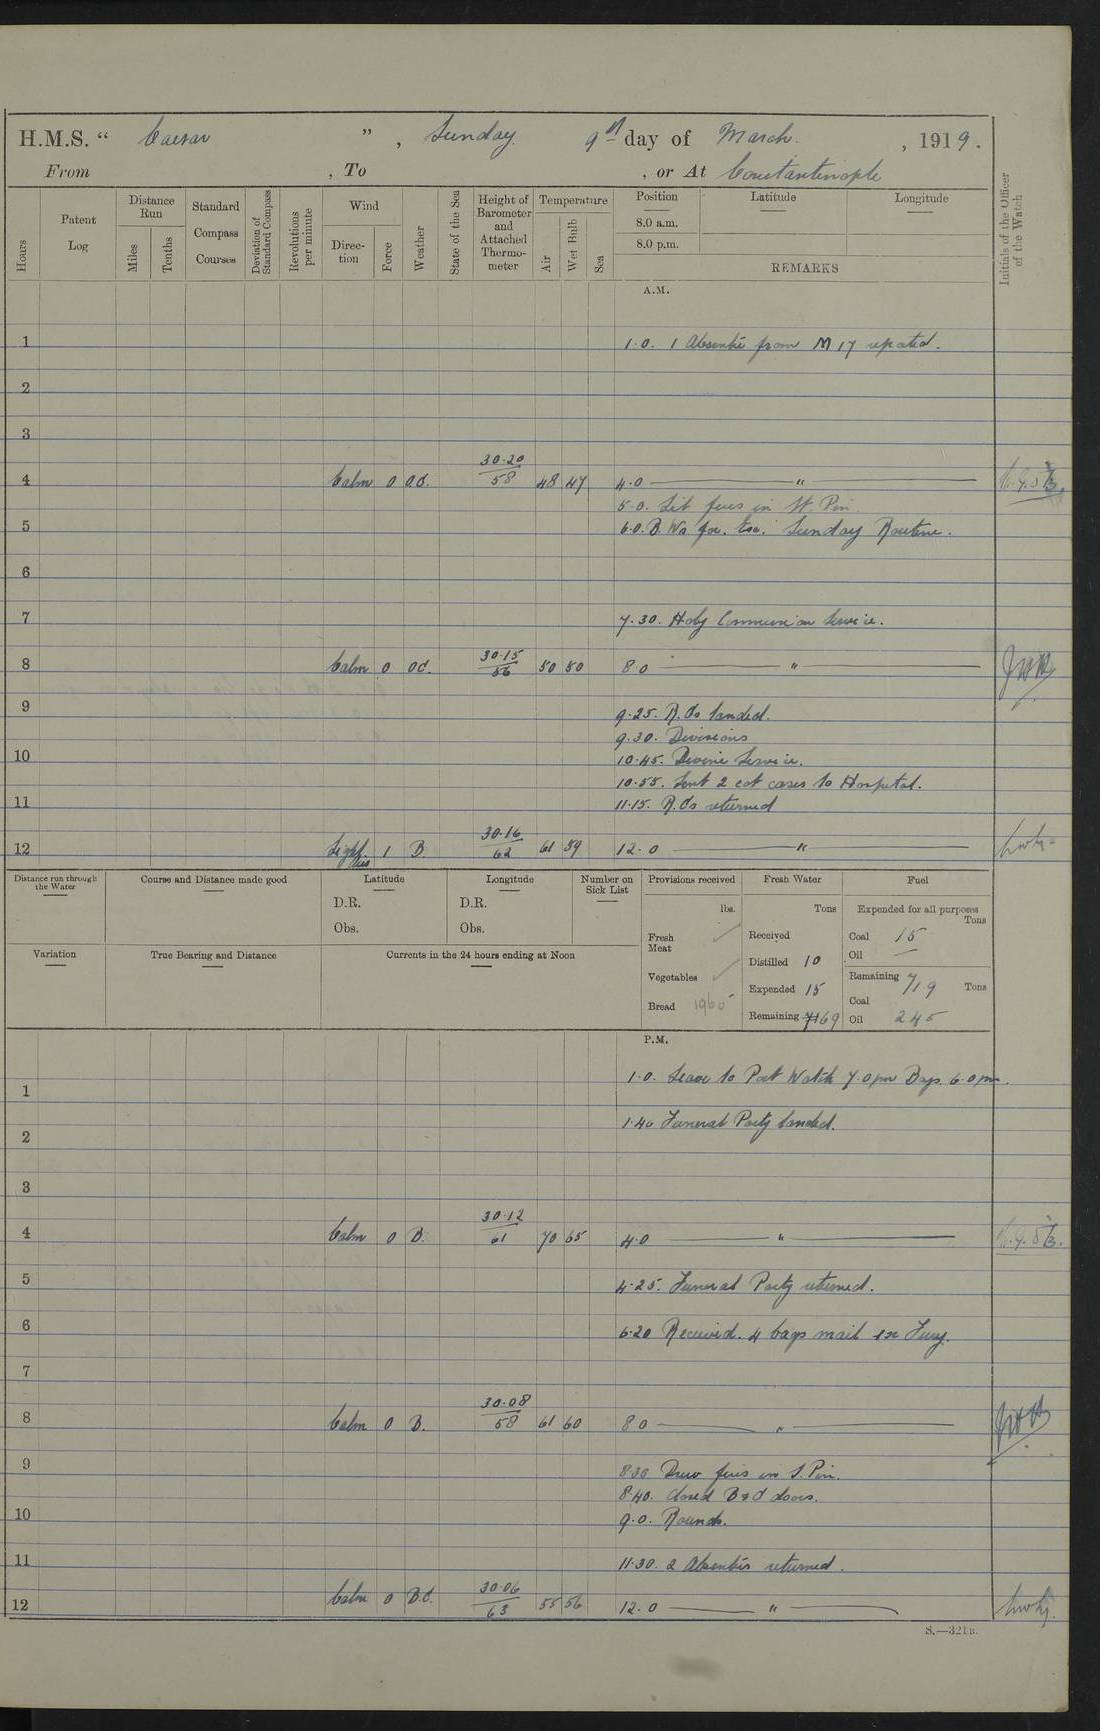 H.M.S. “ Caesar ” , Sunday 9th day of March , 1919.
From , To , or At Constantinople
Hours
Patent Log
Distance Run
Miles
Tenths
Standard Compass Courses
Deviation of Standard Compass
Revolutions per minute
Wind
Direc-tion
Force
Weather
State of the Sea
Height of Barometer and Attached Thermo-meter
Temperature
Air
Wet Bulb
Sea
Position
8.0 a.m.
8.0 p.m.
Latitude
Longitude
REMARKS
Initials of the Officer of the Watch
A.M.
1 1.0. 1 Absentee from M 17
2
3
4 Calm 0 O.C. 30.20 58 48 47 4.0 "
5.0. Lit fires in
5 6.0. Sunday Routine.
6
7 7.30. Holy Communion Service.
8 Calm 0 OC. 30.15 56 50 50 8.0 "
9 9.25. R.Cs landed.
9.30. Divisions
10 10.45. Divine Service.
10.55. Sent 2 cot cases to Hospital.
11 11.15. R.Cs returned
12 Light 1 B 30.16 62 61 59 12.0 "
Distance run through the Water
Course and Distance made good
Latitude
D.R.
Obs.
Longitude
D.R.
Obs.
Number on Sick List
Provisions received
lbs.
Fresh Meat
Vegetables
Bread 1960
Fresh Water
Tons
Received
Distilled 10
Expended 15
Remaining 169
Fuel
Expended for all purposes
Tons
Coal 15
Oil —
Remaining
Tons
Coal 719
Oil 245
Variation
True Bearing and Distance
Currents in the 24 hours ending at Noon
P.M.
1 1.0. Leave to Port Watch 7.0 pm Boys 6.0 pm.
2 1.40 Funeral Party landed.
3
4 Calm 0 B. 30.12 61 70 65 4.0 "
5 4.25. Funeral Party returned.
6 6.20 Received. 4 bags mail ex Fury.
7
8 Calm 0 B. 30.08 58 61 60 8.0 "
9 8.30 Drew fires in S. Pin.
8.40. closed B & C doors.
10 9.0. Rounds.
11 11.30. 2 Absentees returned.
12 Calm 0 B.C. 30.06 63 55 56 12.0 "
S.—321B.